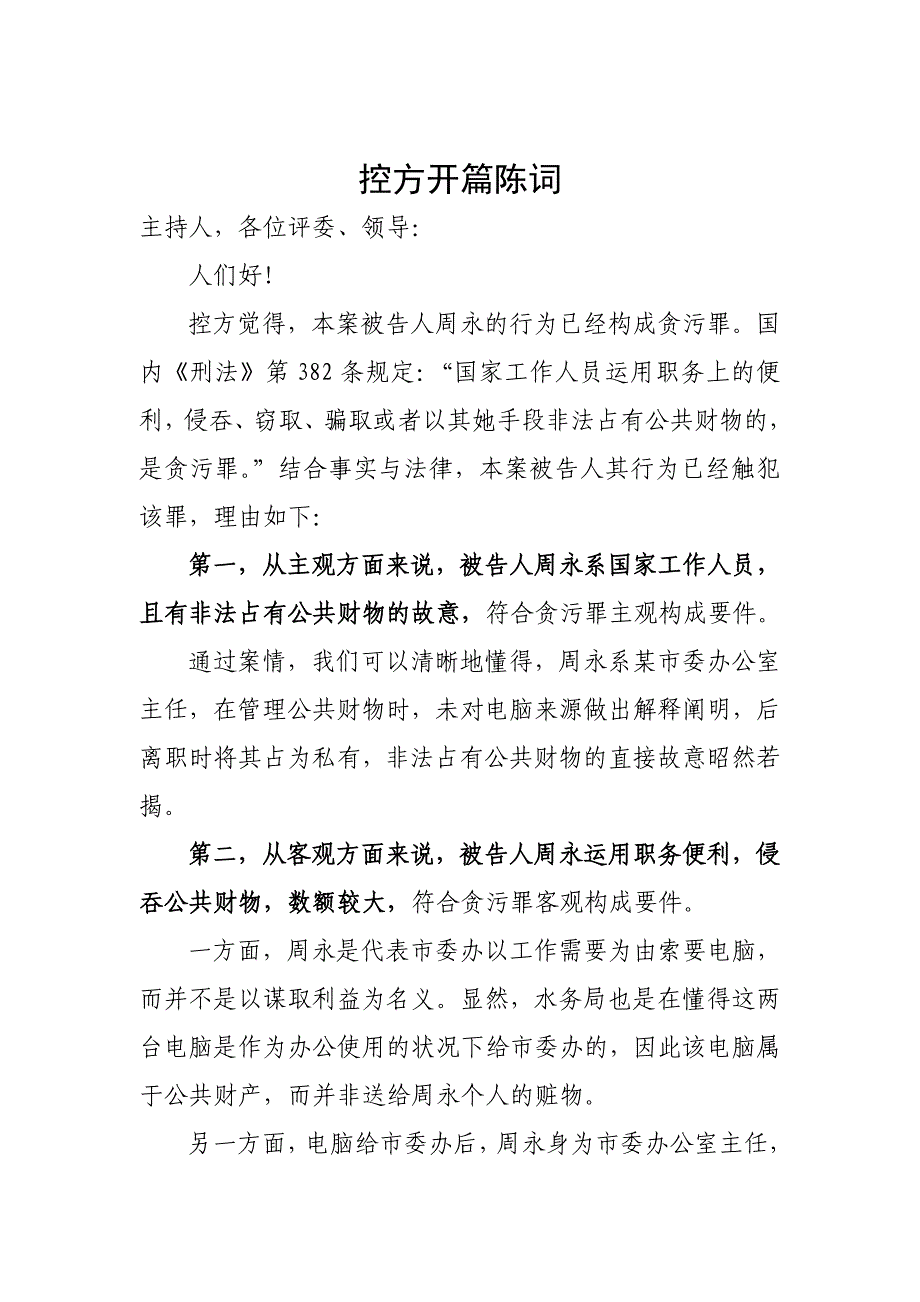 控方开篇陈词
主持人，各位评委、领导：
人们好！
控方觉得，本案被告人周永的行为已经构成贪污罪。国
内《刑法》第 382 条规定：“国家工作人员运用职务上的便
利，侵吞、窃取、骗取或者以其她手段非法占有公共财物的，
是贪污罪。”结合事实与法律，本案被告人其行为已经触犯
该罪，理由如下：
第一，从主观方面来说，被告人周永系国家工作人员，
且有非法占有公共财物的故意，符合贪污罪主观构成要件。
通过案情，我们可以清晰地懂得，周永系某市委办公室
主任，在管理公共财物时，未对电脑来源做出解释阐明，后
离职时将其占为私有，非法占有公共财物的直接故意昭然若
揭。
第二，从客观方面来说，被告人周永运用职务便利，侵
吞公共财物，数额较大，符合贪污罪客观构成要件。
一方面，周永是代表市委办以工作需要为由索要电脑，
而并不是以谋取利益为名义。显然，水务局也是在懂得这两
台电脑是作为办公使用的状况下给市委办的，因此该电脑属
于公共财产，而并非送给周永个人的赃物。
另一方面，电脑给市委办后，周永身为市委办公室主任，